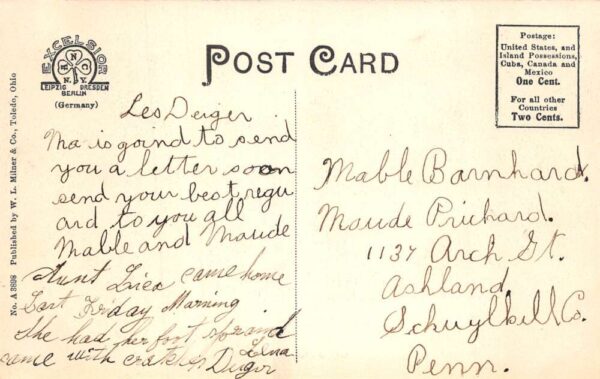 EXCELSIOR
M N CO
N.Y.
LEIPZIG DRESDEN
BERLIN
(Germany)
POST CARD
Postage:
United States, and
Island Possessions,
Cuba, Canada and
Mexico
One Cent.
For all other
Countries
Two Cents.
No. A 3898 Published by W. L. Milner & Co., Toledo, Ohio
Les Deiger
Ma is goind to send
you a letter soon
send your best regu
ard to you all
Mable and Maude
Aunt came home
Last Friday Morning
She had her foot
came with
Lena
Deiger
Mable Barnhard.
Maude Prichard.
1137 Arch St.
Ashland
Schuylkill Co.
Penn.